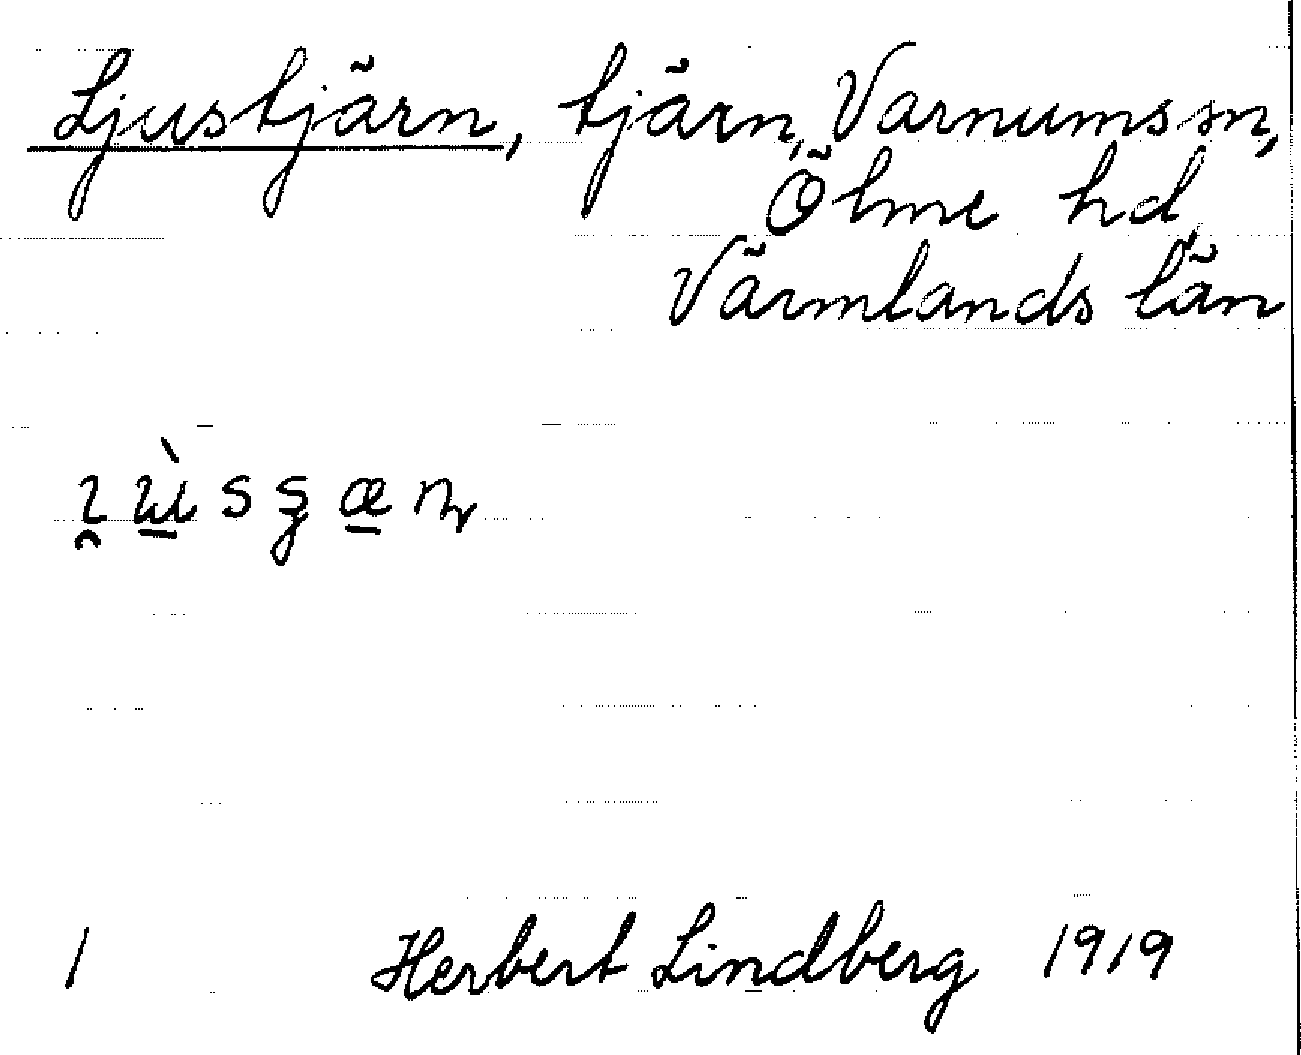 Ljustjärn, tjärn, Varnums sn,
Ölme hd,
Värmlands län
1 Herbert Lindberg 1919